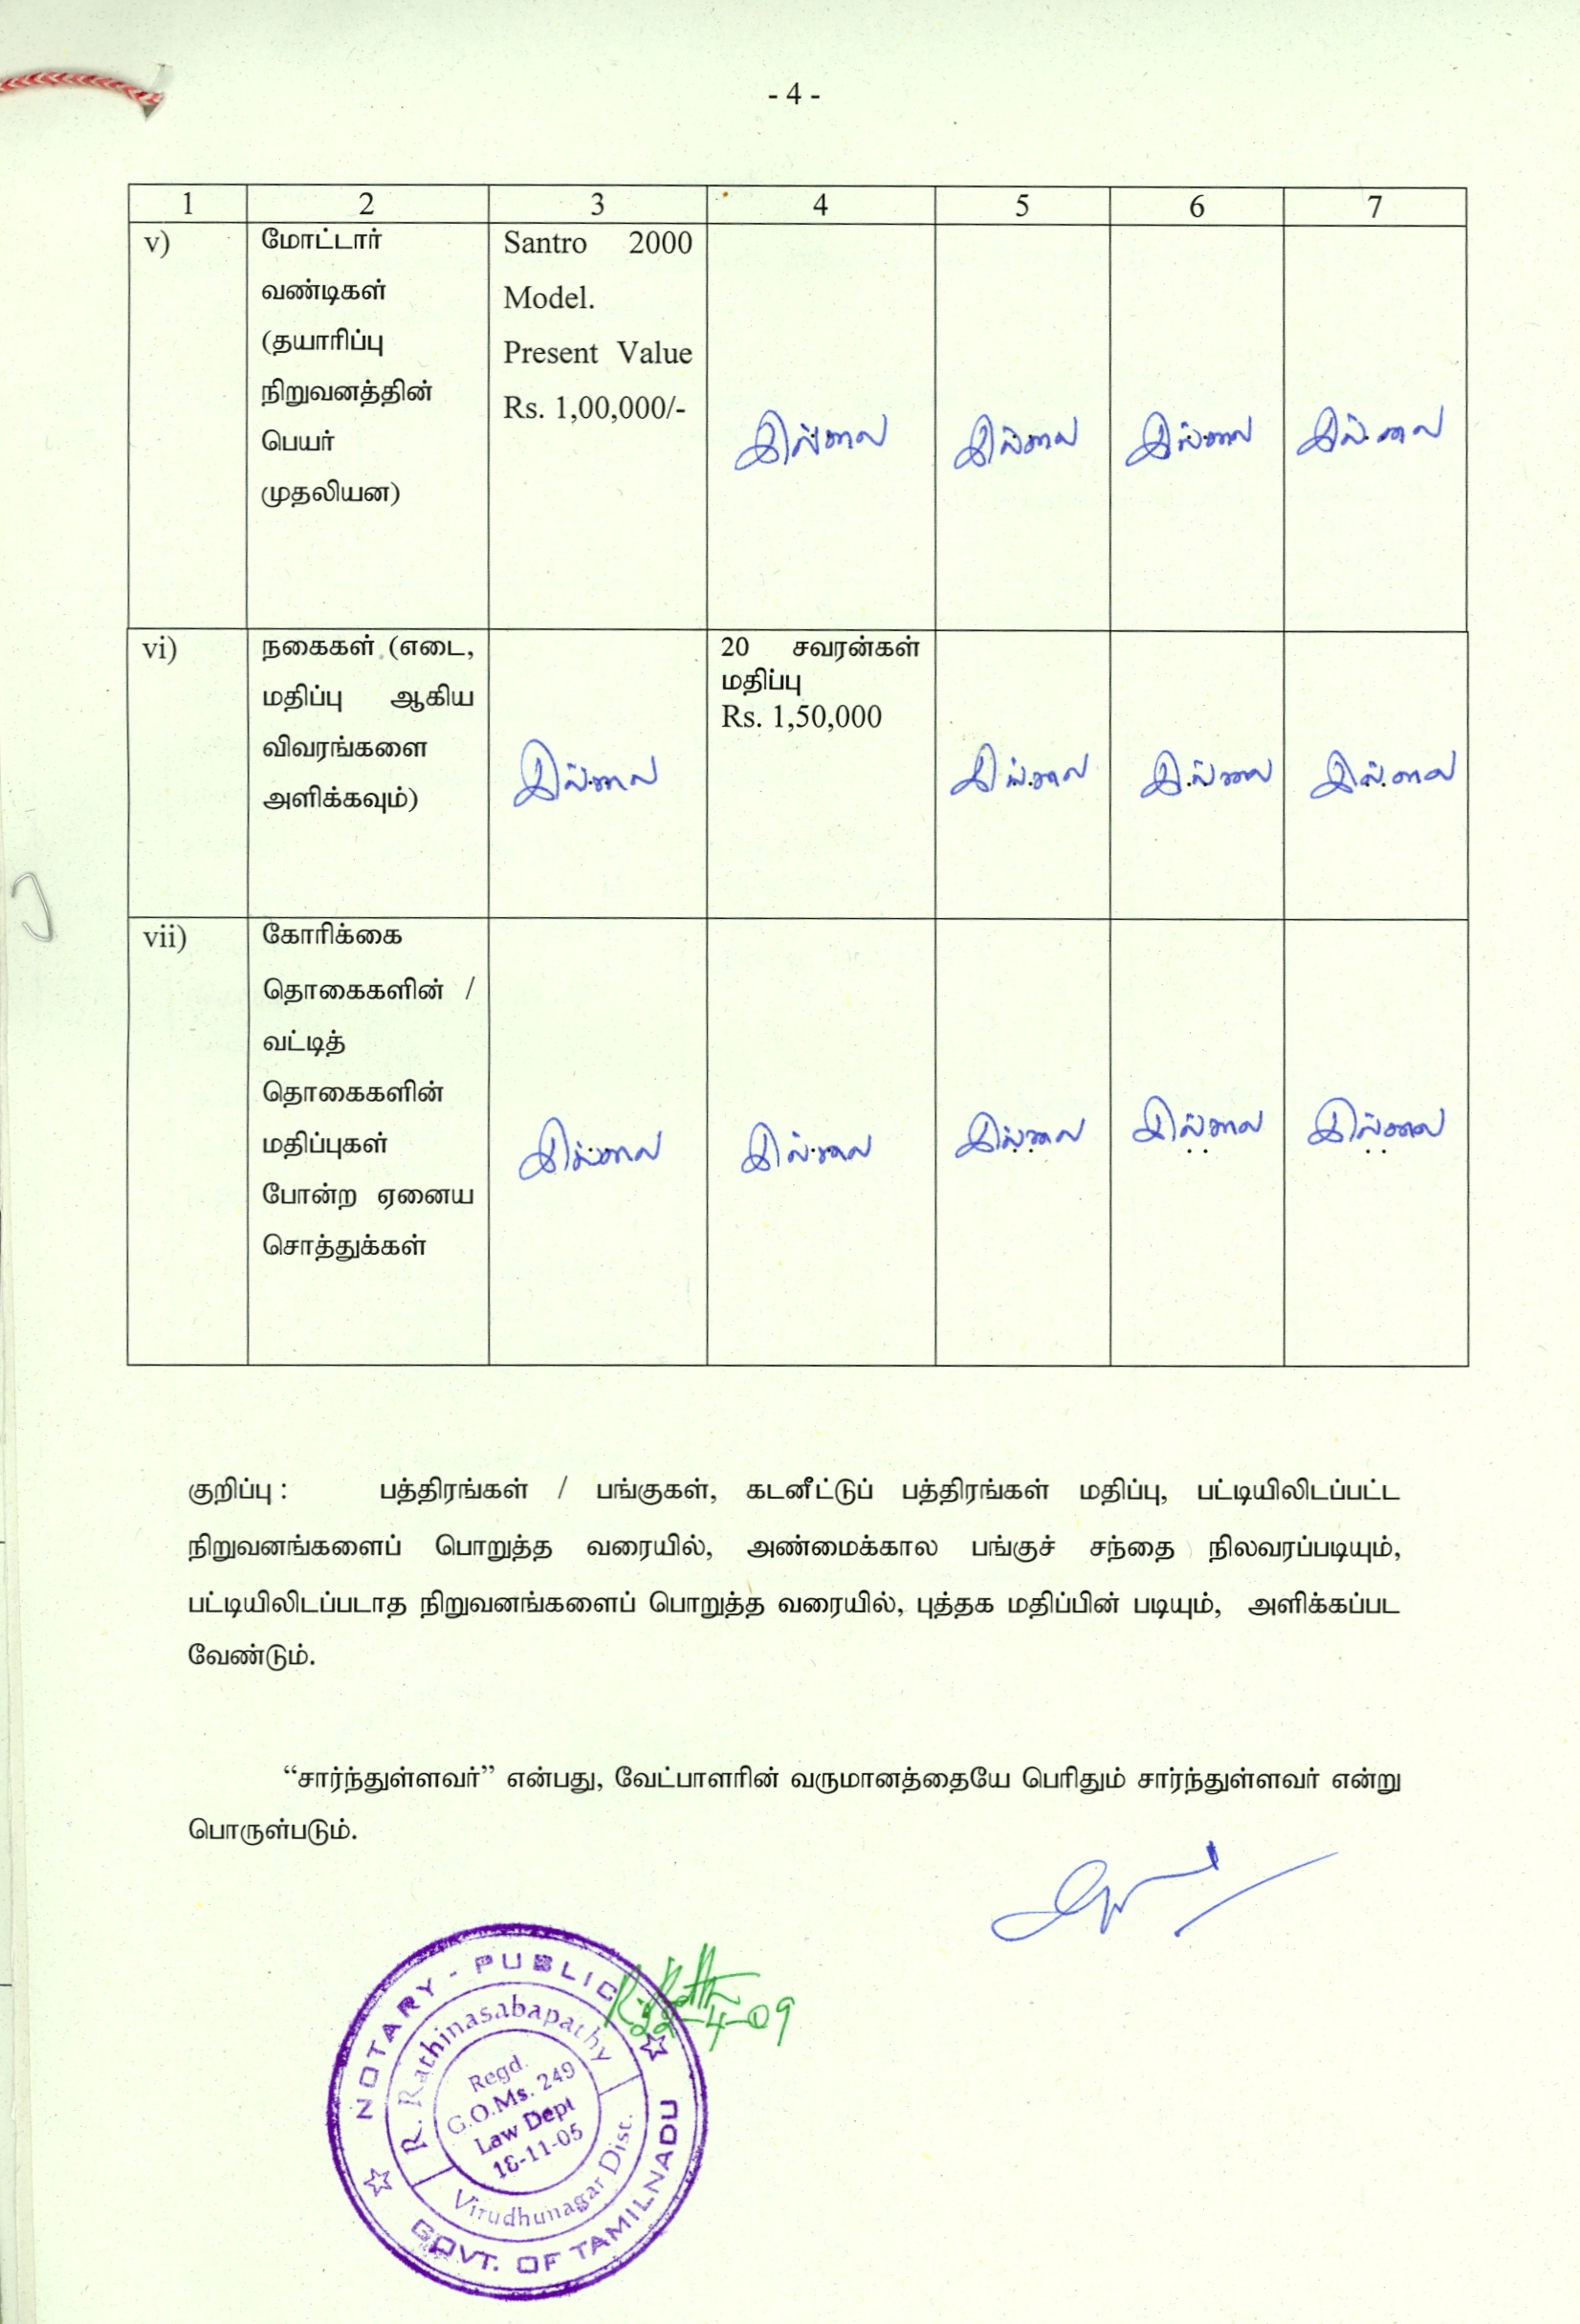 - 4 -
1 2 3 4 5 6 7
v)
மோட்டார்
வண்டிகள்
(தயாரிப்பு
நிறுவனத்தின்
பெயர்
முதலியன)
Santro 2000
Model.
Present Value
Rs. 1,00,000/-
இல்லை
இல்லை
இல்லை
இல்லை
vi)
நகைகள் (எடை,
மதிப்பு ஆகிய
விவரங்களை
அளிக்கவும்)
இல்லை
20 சவரன்கள்
மதிப்பு
Rs. 1,50,000
இல்லை
இல்லை
இல்லை
vii)
கோரிக்கை
தொகைகளின் /
வட்டித்
தொகைகளின்
மதிப்புகள்
போன்ற ஏனைய
சொத்துக்கள்
இல்லை
இல்லை
இல்லை
இல்லை
இல்லை
குறிப்பு : பத்திரங்கள் / பங்குகள், கடனீட்டுப் பத்திரங்கள் மதிப்பு, பட்டியிலிடப்பட்ட
நிறுவனங்களைப் பொறுத்த வரையில், அண்மைக்கால பங்குச் சந்தை நிலவரப்படியும்,
பட்டியிலிடப்படாத நிறுவனங்களைப் பொறுத்த வரையில், புத்தக மதிப்பின் படியும், அளிக்கப்பட
வேண்டும்.
“சார்ந்துள்ளவர்” என்பது, வேட்பாளரின் வருமானத்தையே பெரிதும் சார்ந்துள்ளவர் என்று
பொருள்படும்.
NOTARY - PUBLIC
R. Rathinasabapathy
Regd.
G.O.Ms. 249
Law Dept
18-11-05
Virudhunagar Dist.
GOVT. OF TAMILNADU
22-4-09